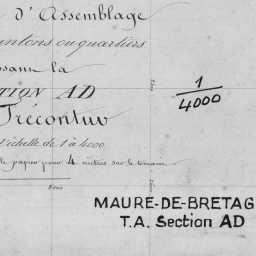 d'Assemblage
cantons ou quartiers
posant la
TION AD
Trécontuv
l'échelle de 1 à 4000
le papier pour 4 mètres sur le terrain
1/4000
MAURE-DE-BRETAG
T.A. Section AD